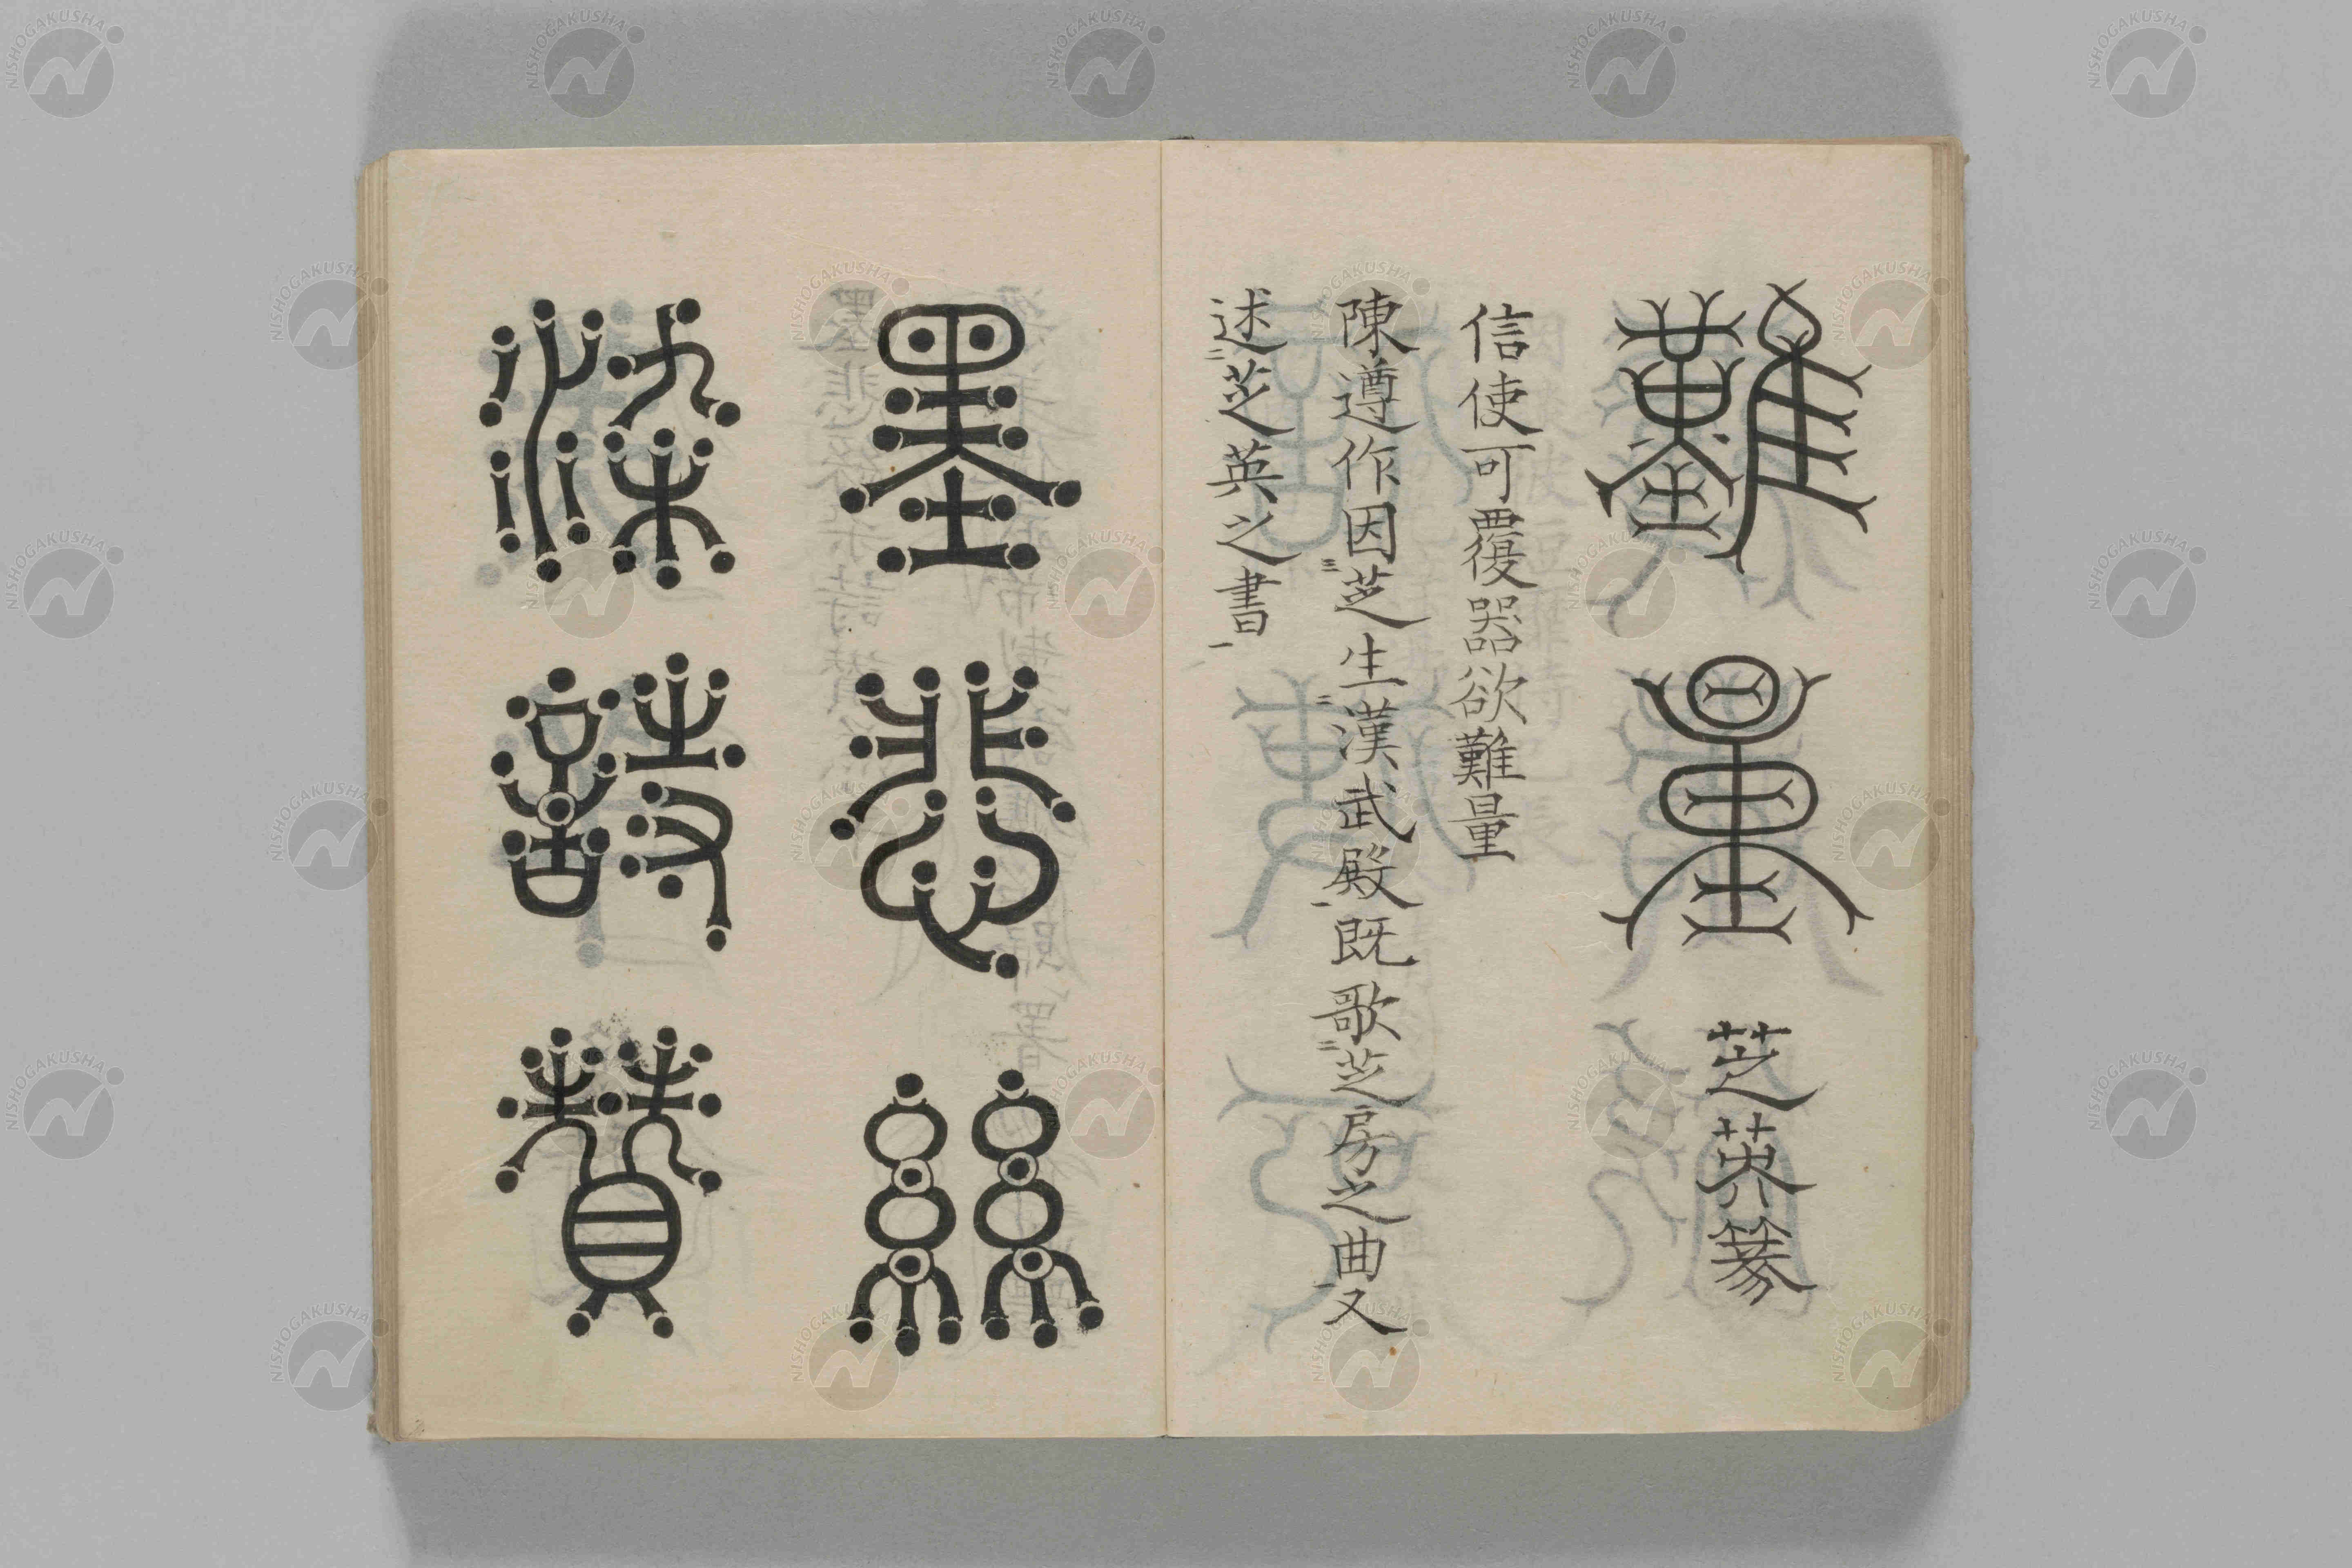 難量 芝英篆
信使可覆器欲難量
陳遵作因芝生漢武殿既歌芝房之曲又
述芝英之書
墨悲絲
染詩讃
NISHOGAKUSHA